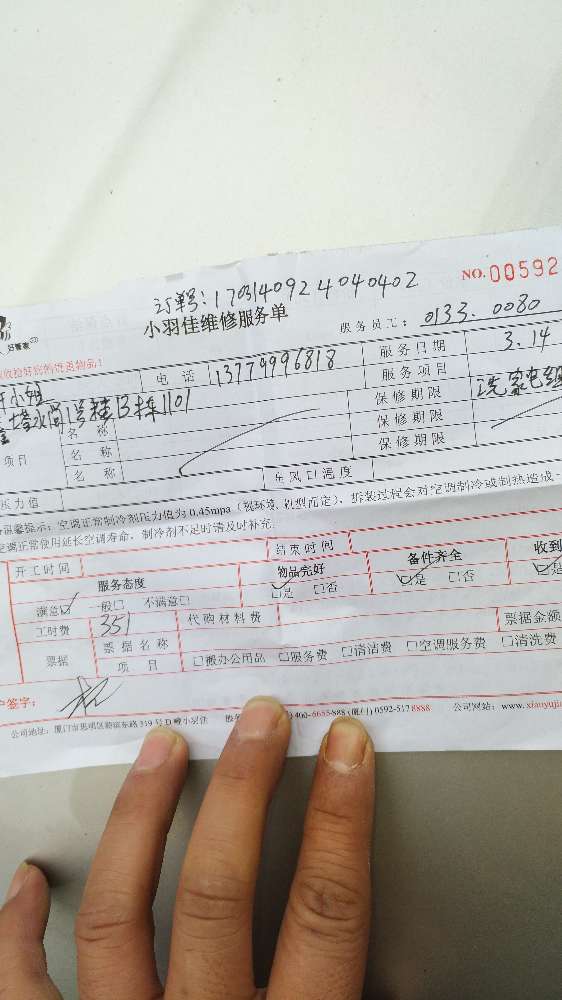 订单号:170314092 4040402
NO.00592
小羽佳维修服务单
服务员工: 0133. 0080
好管家
收检好您的贵重物品!
小姐 电话 13779996818 服务日期 3.14
1号楼B栋1101 服务项目 洗家电
项目 名称 保修期限
名称 保修期限
名称 保修期限
压力值 出风口温度
温馨提示:空调正常制冷剂压力值为0.45mpa(视环境、机型而定),拆装过程会对空调制冷或制热造成
空调正常使用延长空调寿命,制冷剂不足时请及时补充.
开工时间 结束时间
服务态度 物品完好 备件齐全 收到
满意☑ 一般□ 不满意□ ☑是 □否 ☑是 □否 ☑是
工时费 351 代购材料费
票据 票据名称 票据金额
项目 □搬办公用品 □服务费 □清洁费 □空调服务费 □清洗费
户签字:
公司地址:厦门市思明区 东路319号D幢小羽佳 400-6655-888(厦门)0592-5178888 公司网站:www.xiaoyujia